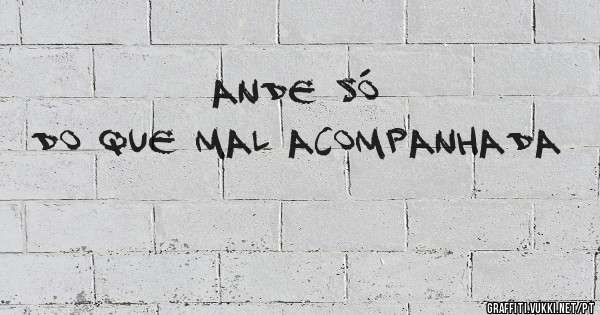 ANDE SÓ
DO QUE MAL ACOMPANHADA
GRAFFITI.VUKKI.NET/PT